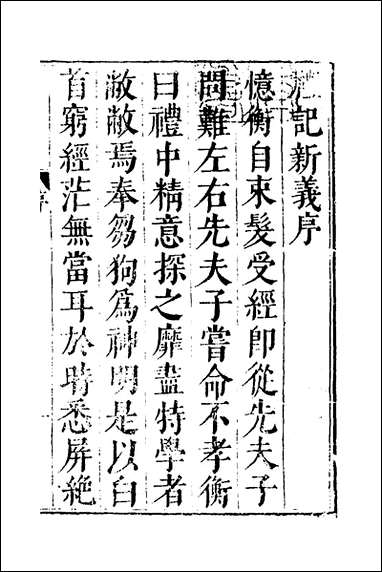 禮記新義序
憶衡自束髮受經即從先夫子
問難左右先夫子嘗命不孝衡
曰禮中精意探之靡盡特學者
敝敝焉奉芻狗為神明是以白
首窮經茫無當耳於時悉屏絶
序